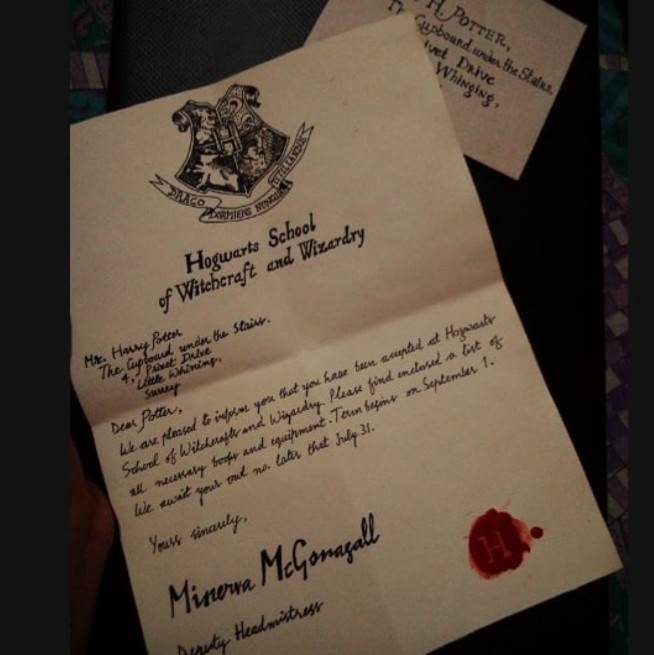 H POTTER,
The Cupboard under the Stairs,
ivet Drive
Whinging,
DRACO DORMIENS
Hogwarts School
of Witchcraft and Wizardry
Mr. Harry Potter
The Cupboard under the Stairs.
4, Privet Drive
Little Whining,
Surrey
Dear Potter,
We are pleased to inform you that you have been accepted at Hogwarts
School of Witchcrafts and Wizardry. Please find enclosed a list of
all necessary books and equipment. Term begins on September 1.
We await your owl no later that July 31.
Yours sincerely,
Minerva McGonagall
Deputy Headmistress
H